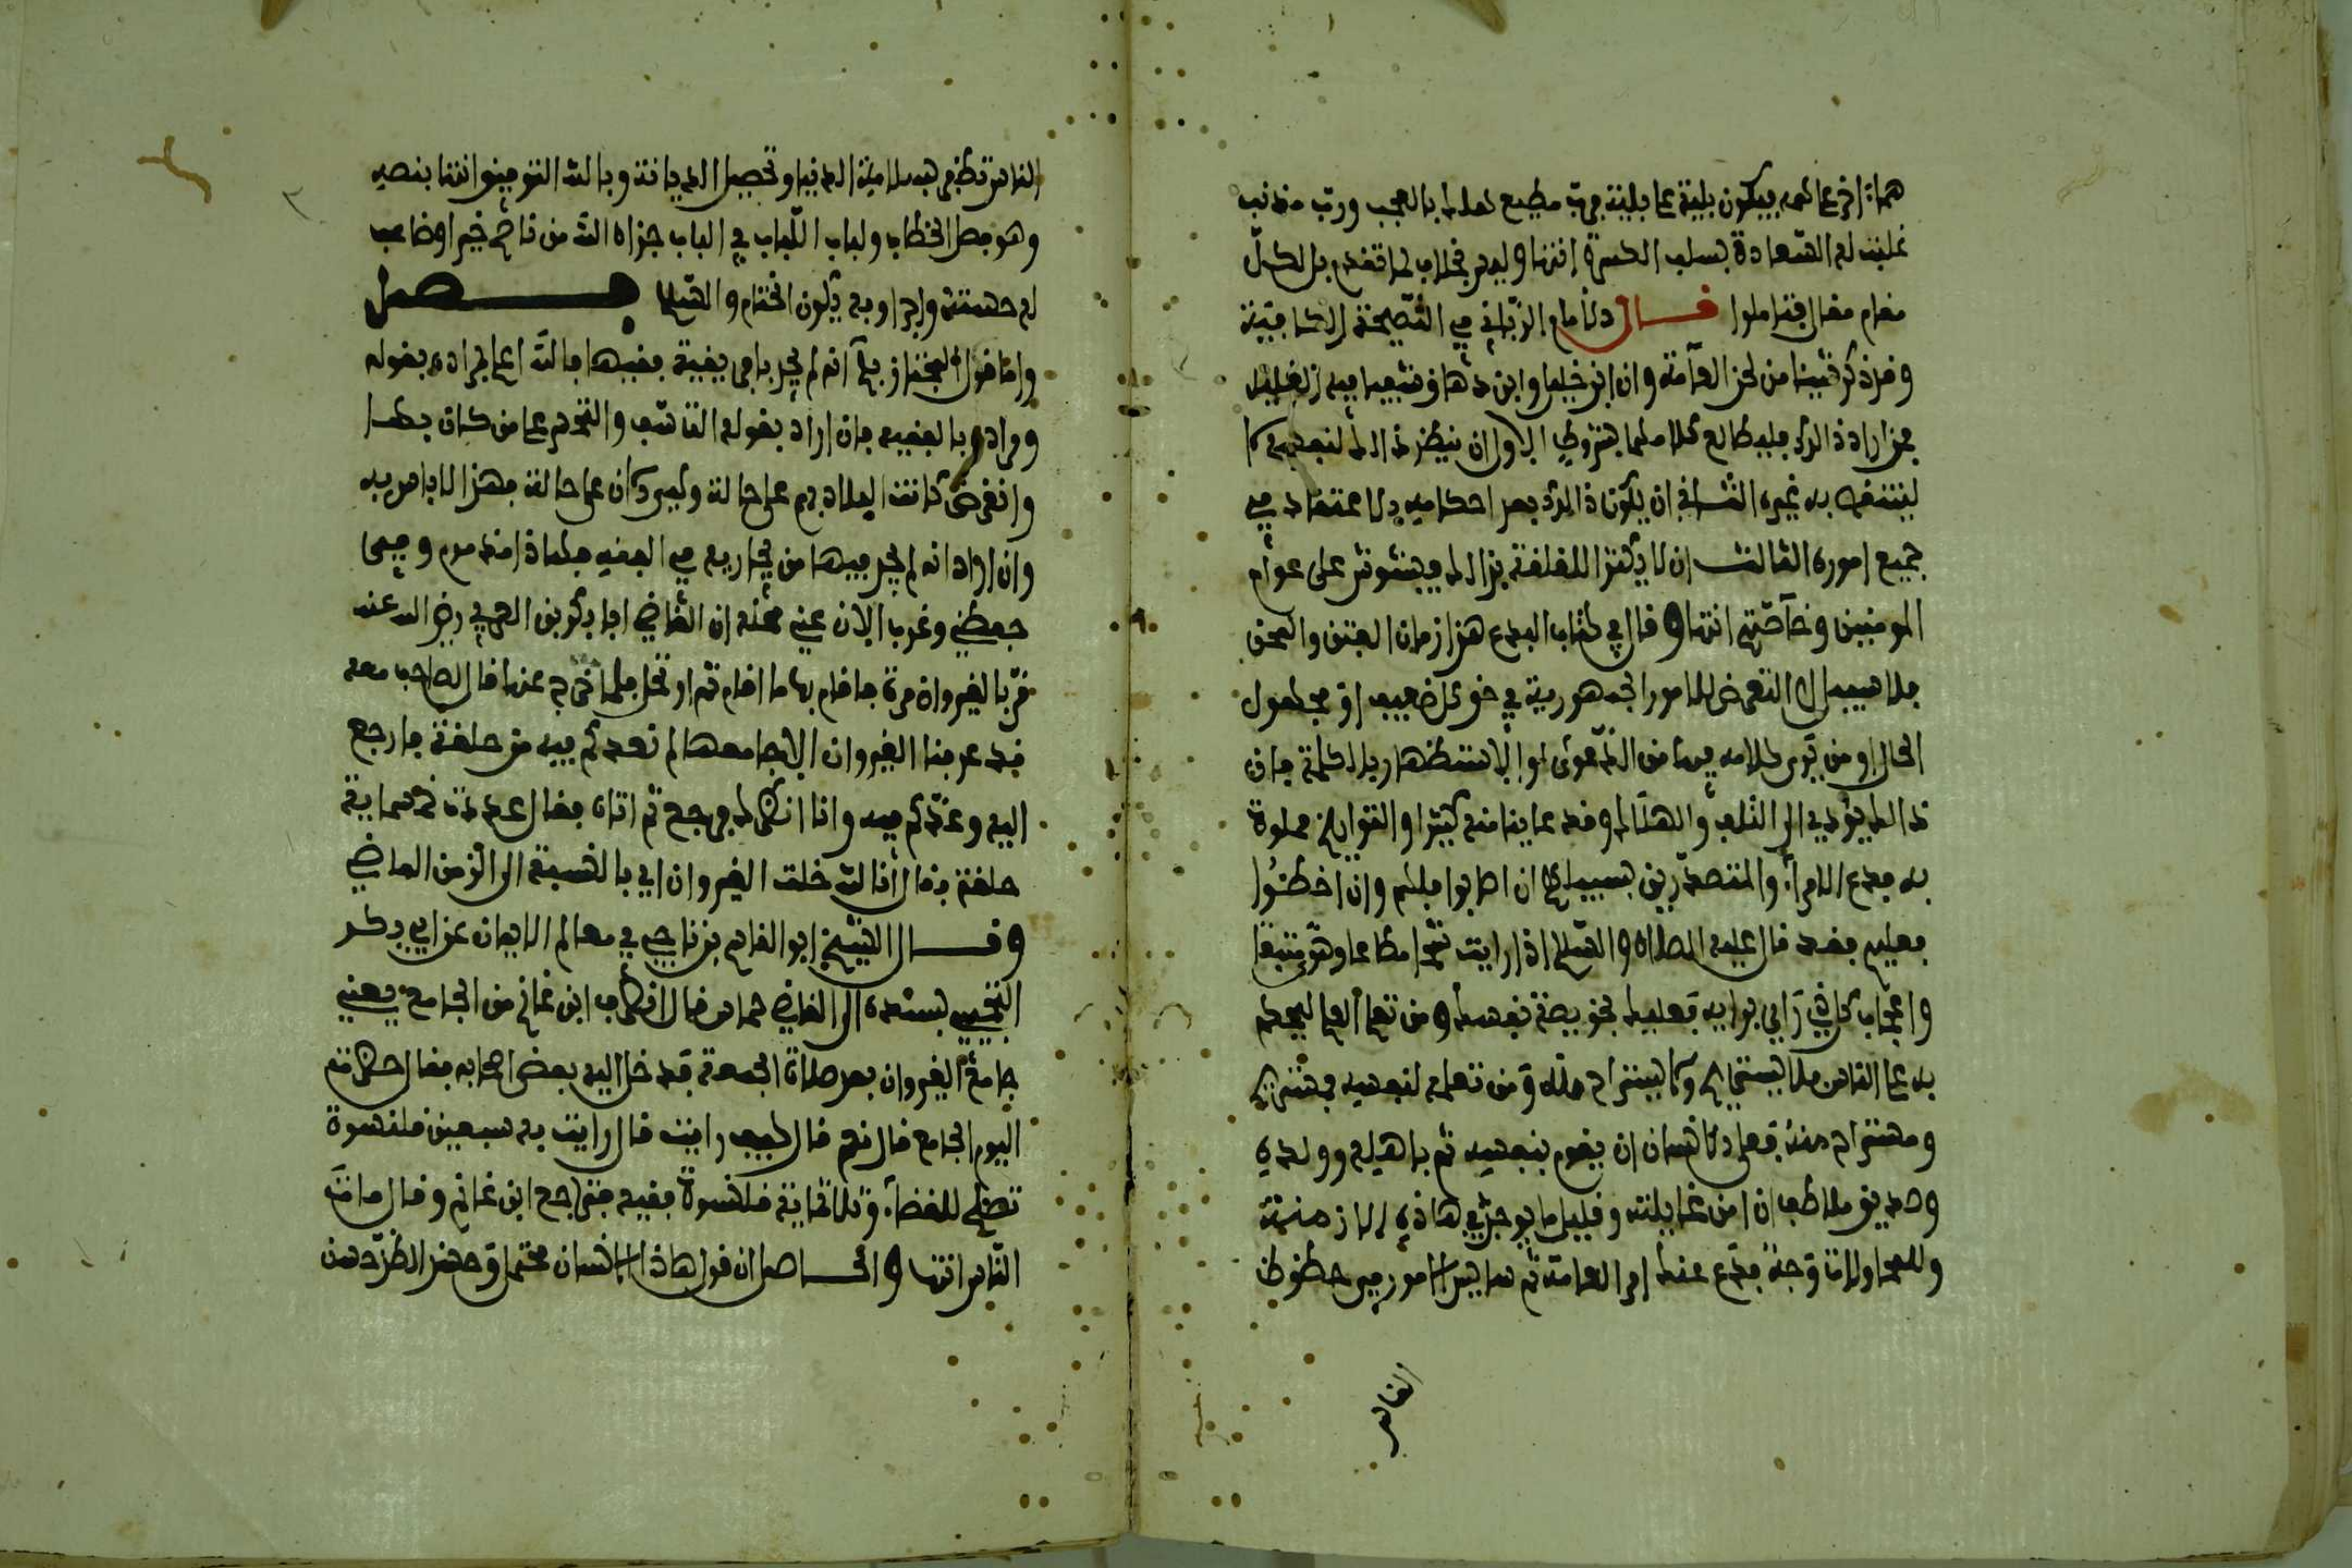 فيكون بلية على بلية فرب مطيع هلك بالعجب ورب مذنب
غلبت له السعادة بسلب الكسرة انتهى وليس بخلاف لما تقدم بل لكل
مقام مقال فتاملوا قال الامام الزياتي في النصيحة الكافية
وقد ذكر شيئا من لحن العامة وان ابن خليل وابن دهاق شيعا فيه الغليل
فمن اراد ذالك فليطالع كلامهما بشروط الاول ان ينظر ذالك لنفسه لا
لينتقد به غيره الثاني ان يكون ذالك بعد احكامه الاعتقاد في
جميع اموره الثالث ان لا يكثر اللقلقة بذالك فيشوش على عوام
المومنين وخاصتهم انتهى وقال في كتاب البدع هذا زمان الفتن والمحن
فلا سبيل الى التعرض للامور الجمهورية في حق كل ضعيف او مجهول
الحال او من يرى كلامه فيها من الدعوى لو الاستظهار بالكلمة فان
ذالك يؤدي الى التلف والهلاك وقد عاينا منه كثيرا والتواريخ مملوة
به فدع الامراء والمتصدرين بسبيلهم ان اصابوا فلهم وان اخطئوا
فعليهم فقد قال عليه الصلاة والسلام اذا رايت شحا مطاعا وهوى متبعا
واعجاب كل ذي راي برايه فعليك بخويصة نفسك ومن تعلم العلم ليحكم
به على الناس فلا يستحي لهم ولا يستزاد منه ومن تعلمه لنفسه فيستزاد
ومستزاد منه فعلى الانسان ان يقوم بنفسه ثم باهله وولده
وصديق ملاطف ان امن غايلته وقليل ما يوجد في هاذه الازمنة
وللعجاولاتا وجه فدع عنك امر العامة ثم ساير الامور فيه حظوظ
الناس
الناس تظفر بسلامة الدنيا وتحصيل الديانة وبالله التوفيق انتهى بنصه
وهو فصل الخطاب ولباب اللباب في الباب جزاه الله من ناصح خيرا وضاعف
له حسنته واجرا وبه يكون الختام والسلام فصل
واما قول المجتاز بكم انه لم يجد باجر بقية يفيبها فالله اعلم بمراده بقوله
ومراده بالفقيه فان اراد بقوله التاسف والتحسر على من كان بها
وانقرض كانت البلاد بهم على حالة وليس كان على حالة فهذا لا باس به
وان اراد انه لم يجد فيها من يجاريه في الفقه فهاذا مذموم وفيما
حفظي وغرب الان عني محله ان القاضي ابا بكر بن العربي رضي الله عنه
مر بالقيروان مرة فاقام بها ما اقام ثم ارتحل فلما خرج عنها قال لصاحب معه
قد عرفنا القيروان الا جامعها لم نعد كم فيه من حلقة فارجع
اليه وعد كم فيه وانا انتظرك فرجع ثم اتاه فقال عددت خمسماية
حلقة فقال انا لله خلت القيروان اي بالنسبة الى الزمن الماضي
وقال الشيخ ابو القاسم بن ناجي في معالم الايمان عن ابي بكر
التجيبي بسنده الى القاضي حماس قال انصرف ابن غانم من الجامع يعني
جامع القيروان بعد صلاة الجمعة فدخل اليه بعض اصحابه فقال حضرت
اليوم الجامع قال نعم قال كيف رايت قال رايت به سبعين قلنسوة
تصلح للقضاء وثلاثماية قلنسوة فقيه فترجع ابن غانم وقال مات
الناس انتهى والحاصل ان قول هاذا الانسان محتمل وحيث الظن حسن